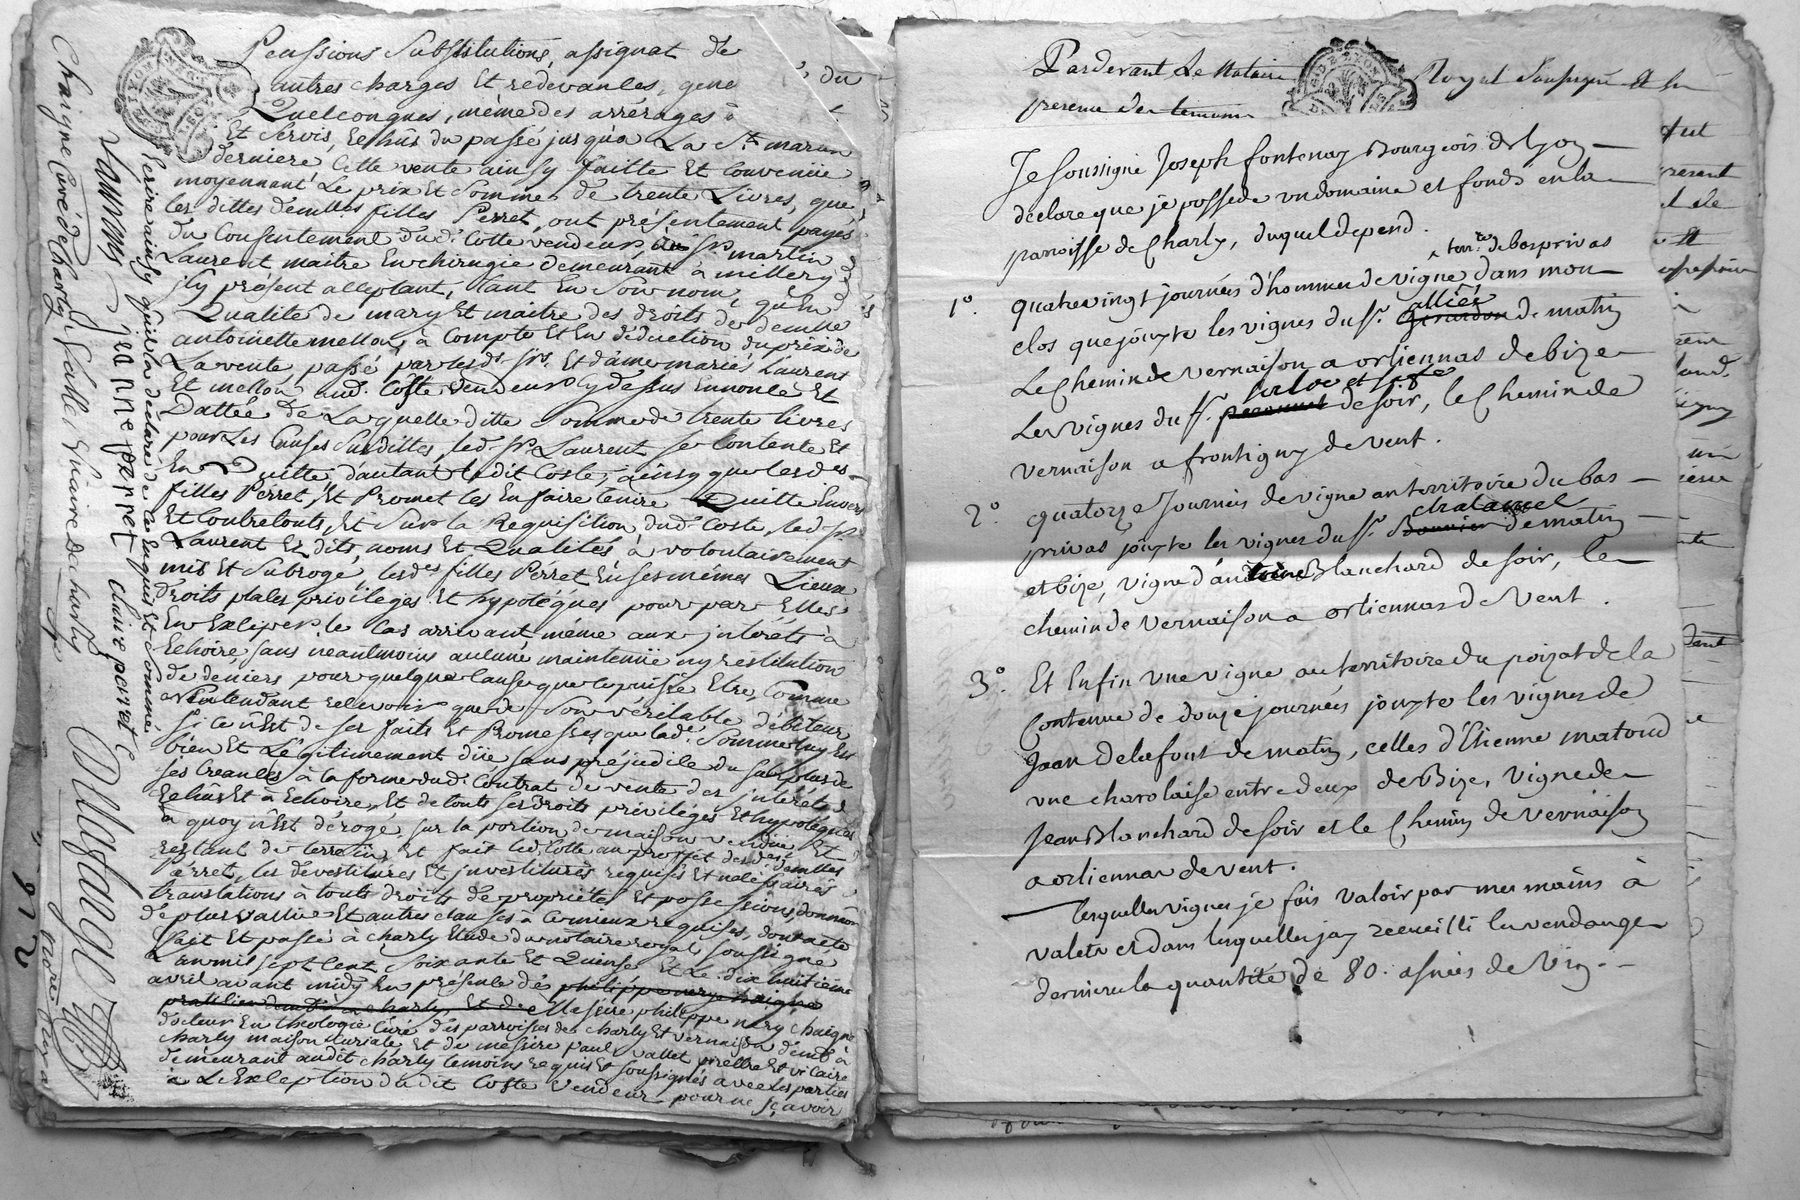 Pensions Substitutions, assignat de
autres charges Et redevances, gene
Quelconques, même des arrérages
Et Servis, Echus du passé jusqu'a La St martin
derniere Cette vente ainsy faitte Et Convenüe
moyennant Le prix Et Somme de trente Livres, que
les dittes demlles filles Perret, ont présentement payés
du Consentement dud. Coste vendeur, au Sr. martin
Laurent maitre En chirugie demeurant à millery
jcy présent acceptant, tant En Son nom, qu'En
Qualité de mary Et maitre des droits de demlle
antoinette mellon, à Compte Et En déduction du prix de
La vente passé par lesd. Srs. Et dame mariés Laurent
Et mellon aud. Coste vendeur cydessus Ennoncé Et
Dattée de Laquelle ditte Somme de trente livres
pour Les Causes Susdittes, led. Sr. Laurent se Contente Et
En Quitte d'autant ledit Coste, ainsy que lesdes
filles Perret, Et Promet les En faire tenir Quitte Envers
Et Contre touts, Et Sur la Requisition dud. Coste, led. Sr.
Laurent Ez dits, noms Et Qualités à volontairement
mis Et Subrogé, lesdes filles Perret En ses mêmes Lieux
Droits places privileges Et hypotéques pour par Elles
En Exciper, le Cas arrivant même aux jntérêts à
Echoire, sans neantmoins aucune maintenüe ny réstitution
de déniers pour quelque Cause que ce puisse Etre, Comme
N'Entendant recevoir que de Son véritable débiteur
Si ce n'Est de ses faits Et Promesses, que lade. Somme luy Est
bien Et Légitimement düe, sans préjudice du Surplus de
ses Creances à la forme dud. Contrat de vente des jntérêts
Echûs Et à Echoire, Et de touts ses Droits privilégés Et hypotéques
à quoy n'Est dérogé, sur la portion de maison vendüe Et
restant de terrein, Et fait led. Coste au proffit desdes demlles
Pérret, les dévestitures Et jnvestitures requises Et nécéssaires
translations à touts droits de propriétés Et possessions, donnation
de plus vallüe Et autres clauses à Ce mieux requises, dont acte
fait Et passé à charly Etude du notaire royal Soussigné
L'an mil sept cent Soixante Et Quinse Et Le dix huitieme
avril avant midy En présence de philippe nery chaigne
praticien demt. à charly, Et de Messire philippe nery chaigne
docteur En theologie Curé des parroisses de charly Et vernaison demt. à
charly maison Curiale Et de messire paul vallet prettre Et vicaire
demeurant audit charly temoins requis Et soussignés avec les parties
à L'Exception dudit Coste vendeur pour ne sçavoir
Ecrire ainsy qu'il la déclaré de ce Enquis Et Sommé
Laurans jeanne perret claire perret
Chaigne Curé de charly Vallet Vicaire de charly
972
Par devant Le Notaire Royal Soussigné Et En
presence des temoins
Je soussigné Joseph fontenay Bourgeois de Lyon
declare que je possede un domaine et fonds en la
paroisse de Charly, duquel depend.
1º. quatrevingt journées d'hommes de vigne terr.re de bas privas dans mon
clos que joinxte les vignes du Sr. Girardon alliez de matin
Le Chemin de vernaison a orliennas de bize
Les vignes du Sr. de soir, le Chemin de
vernaison a frontigny de vent.
2º. quatorze Journées de vigne au territoire du bas
privas joinxte les vignes du Sr. chalamel de matin
et bize, vigne d'antoine Blanchard de soir, le
chemin de vernaison a orliennas de vent.
3º. Et Enfin une vigne au territoire du poizat de la
Contenue de douze journées joinxte les vignes de
Jean Delafont de matin, celles d'Etienne matoud
une charolaise entre deux de Bize, vigne de
Jean Blanchard de soir et le Chemin de vernaison
a orliennas de vent.
lesquelles vignes je fais valoir par mes mains à
valets et dans lesquelles j'ay recueilli la vendange
derniere la quantité de 80. asnées de vin.